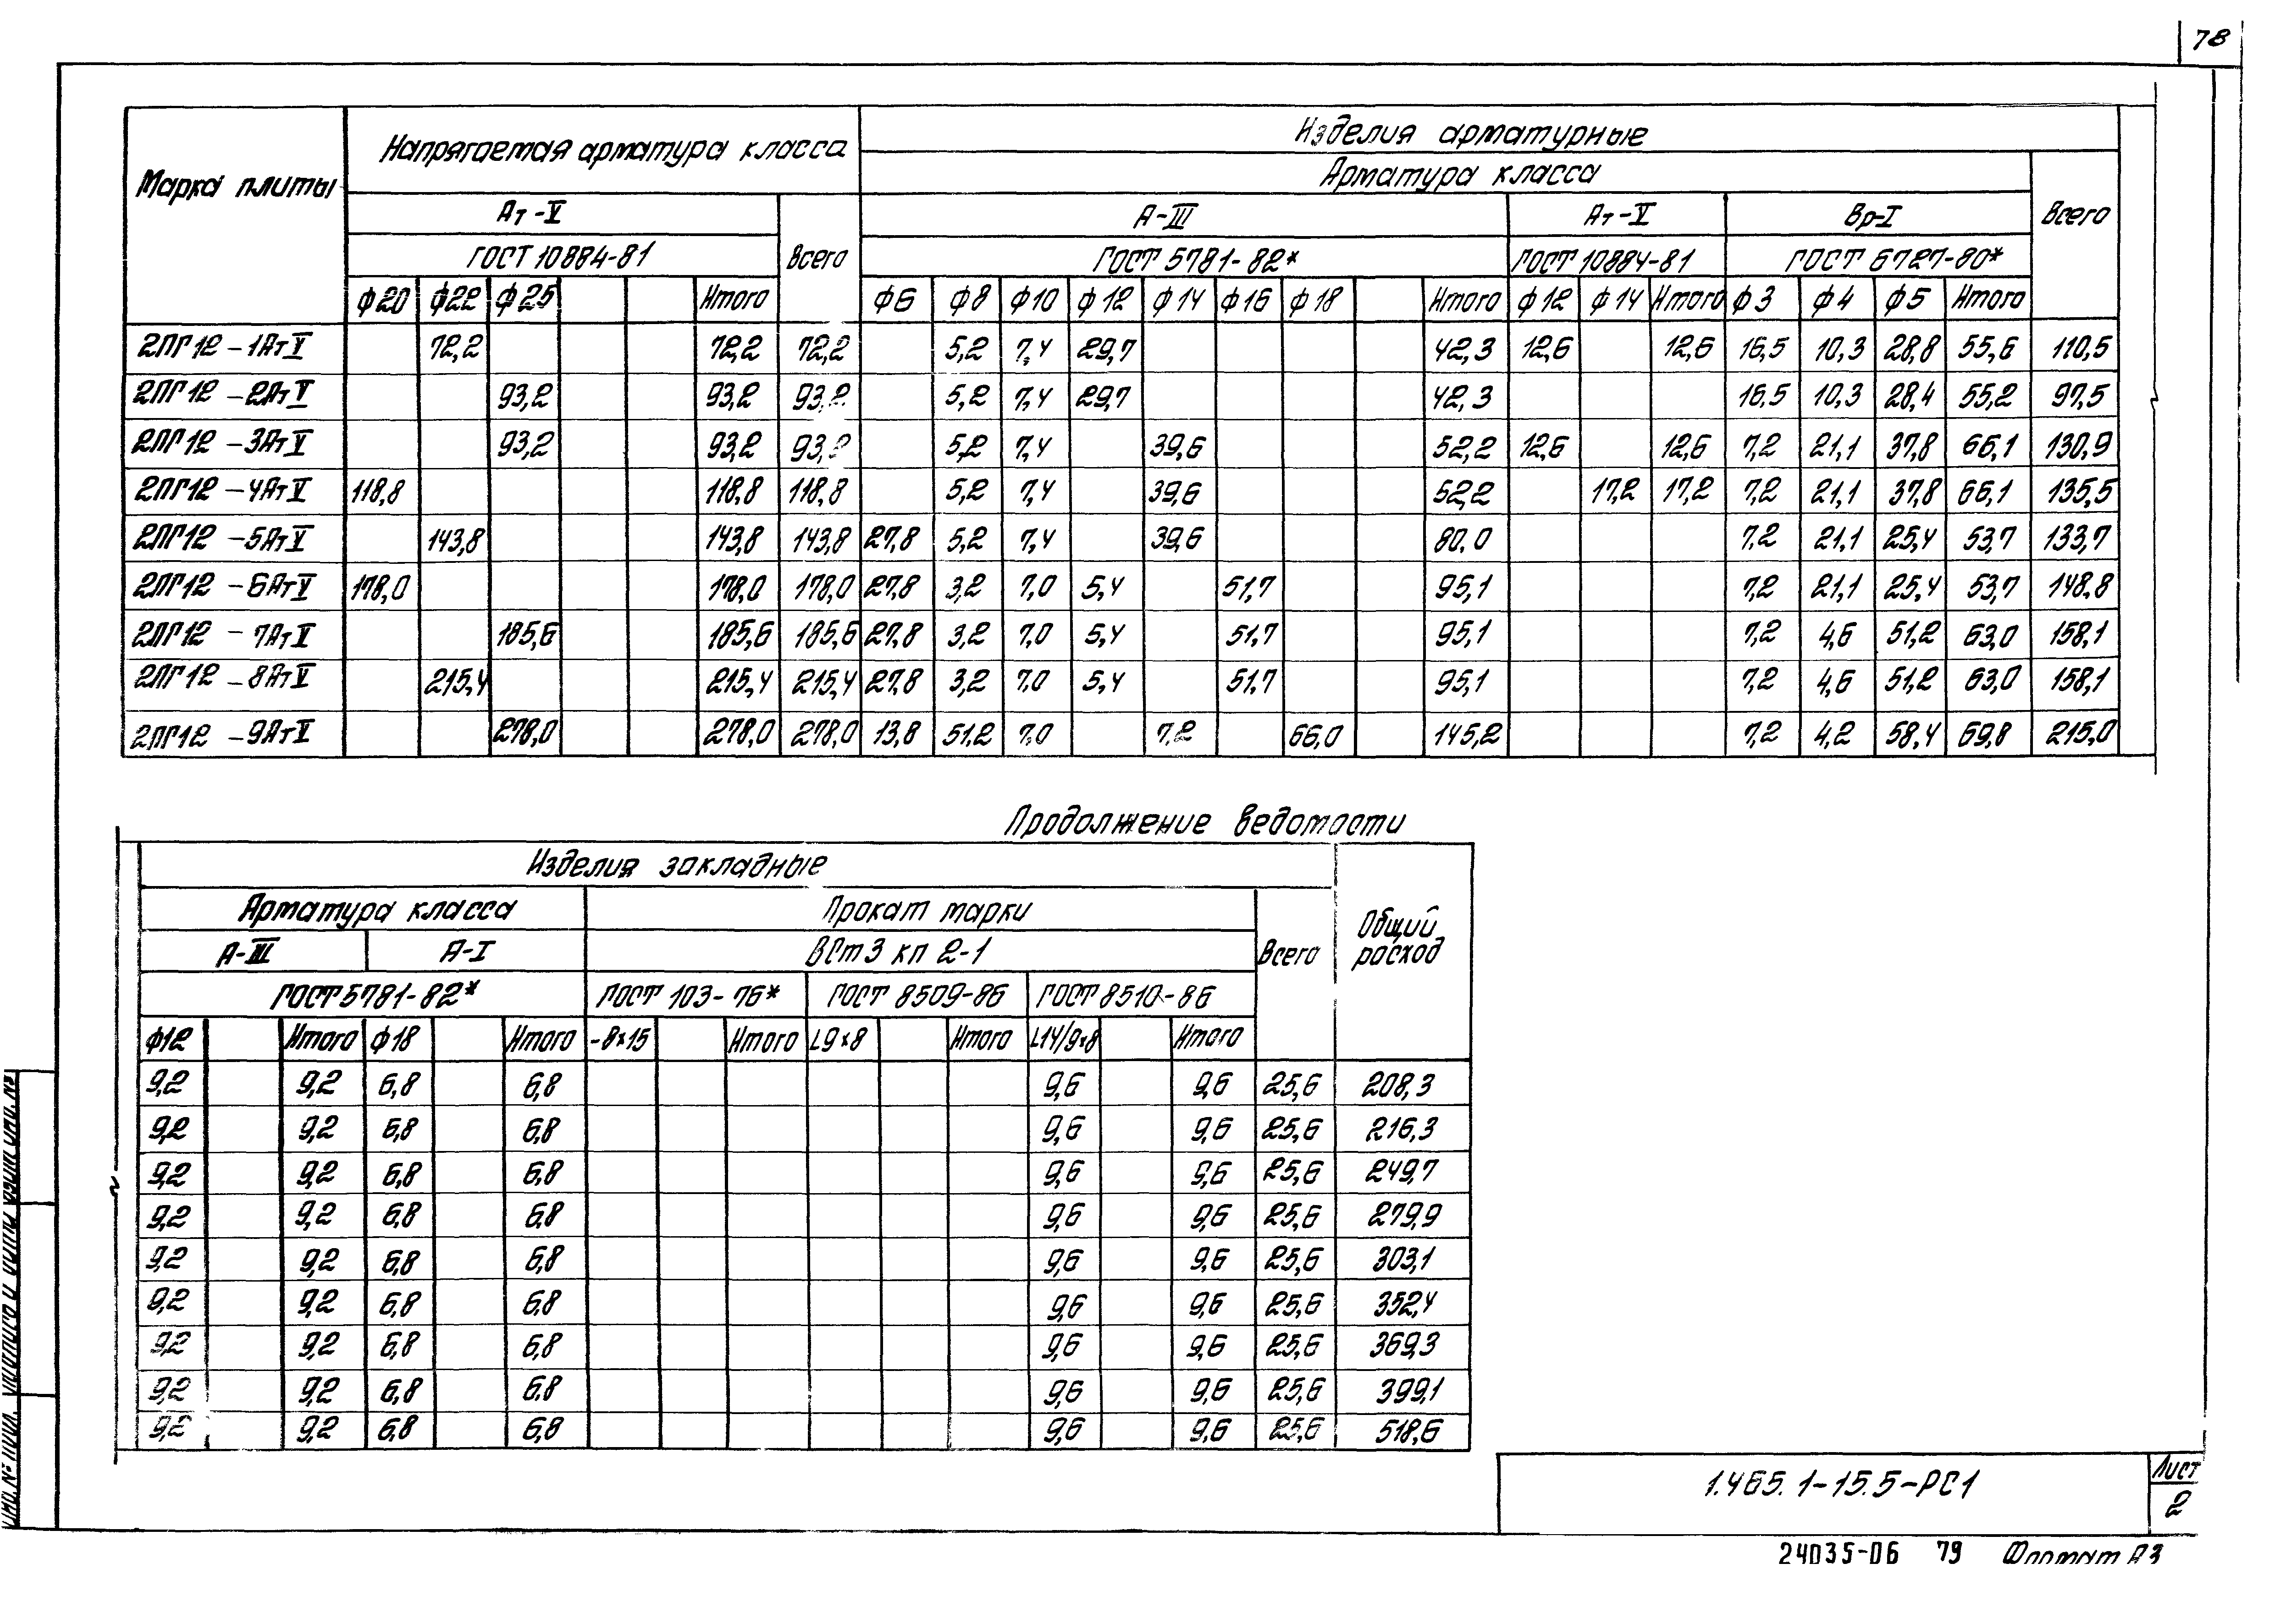 78
Марка плиты | Напрягаемая арматура класса | Изделия арматурные
Арматура класса | Всего
Ат-V | Всего | А-III | Ат-V | Вр-I
ГОСТ 10884-81 | ГОСТ 5781-82* | ГОСТ 10884-81 | ГОСТ 6727-80*
ф20 | ф22 | ф25 | Итого | ф6 | ф8 | ф10 | ф12 | ф14 | ф16 | ф18 | Итого | ф12 | ф14 | Итого | ф3 | ф4 | ф5 | Итого
2ПГ12-1АтV 72,2 72,2 72,2 5,2 7,4 29,7 42,3 12,6 12,6 16,5 10,3 28,8 55,6 110,5
2ПГ12-2АтV 93,2 93,2 93,2 5,2 7,4 29,7 42,3 16,5 10,3 28,4 55,2 97,5
2ПГ12-3АтV 93,2 93,2 93,2 5,2 7,4 39,6 52,2 12,6 12,6 7,2 21,1 37,8 66,1 130,9
2ПГ12-4АтV 118,8 118,8 118,8 5,2 7,4 39,6 52,2 17,2 17,2 7,2 21,1 37,8 66,1 135,5
2ПГ12-5АтV 143,8 143,8 143,8 27,8 5,2 7,4 39,6 80,0 7,2 21,1 25,4 53,7 133,7
2ПГ12-6АтV 178,0 178,0 178,0 27,8 3,2 7,0 5,4 51,7 95,1 7,2 21,1 25,4 53,7 148,8
2ПГ12-7АтV 185,6 185,6 185,6 27,8 3,2 7,0 5,4 51,7 95,1 7,2 4,6 51,2 63,0 158,1
2ПГ12-8АтV 215,4 215,4 215,4 27,8 3,2 7,0 5,4 51,7 95,1 7,2 4,6 51,2 63,0 158,1
2ПГ12-9АтV 278,0 278,0 278,0 13,8 51,2 7,0 7,2 66,0 145,2 7,2 4,2 58,4 69,8 215,0
Продолжение ведомости
Изделия закладные | Общий расход
Арматура класса | Прокат марки | Всего
А-III | А-I | ВСт3 кп 2-1
ГОСТ 5781-82* | ГОСТ 103-76* | ГОСТ 8509-86 | ГОСТ 8510-86
ф12 | Итого | ф18 | Итого | -8х15 | Итого | L9х8 | Итого | L14/9х8 | Итого
9,2 9,2 6,8 6,8 9,6 9,6 25,6 208,3
9,2 9,2 6,8 6,8 9,6 9,6 25,6 216,3
9,2 9,2 6,8 6,8 9,6 9,6 25,6 249,7
9,2 9,2 6,8 6,8 9,6 9,6 25,6 279,9
9,2 9,2 6,8 6,8 9,6 9,6 25,6 303,1
9,2 9,2 6,8 6,8 9,6 9,6 25,6 352,4
9,2 9,2 6,8 6,8 9,6 9,6 25,6 369,3
9,2 9,2 6,8 6,8 9,6 9,6 25,6 399,1
9,2 9,2 6,8 6,8 9,6 9,6 25,6 518,6
1.465.1-15.5-РС1
Лист
2
24035-06 79 Формат А3